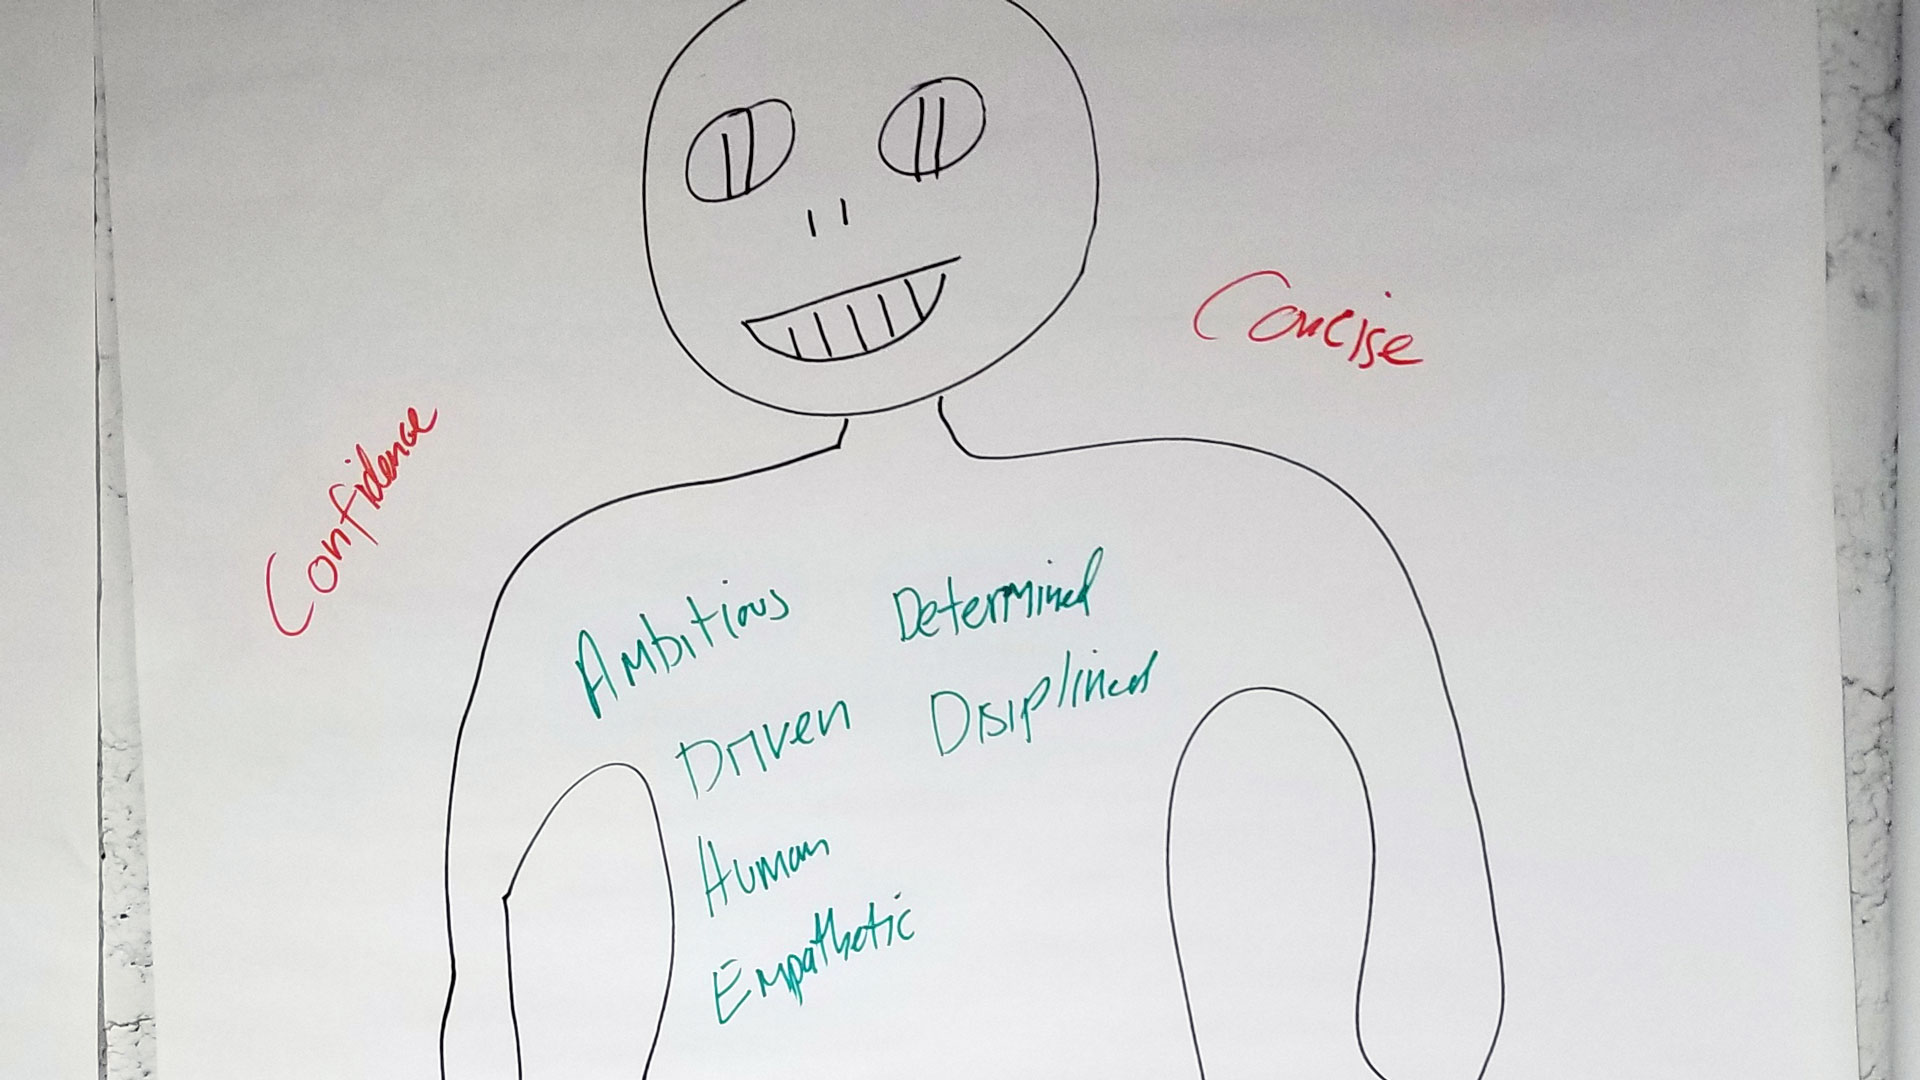 Concise
Confidence
Ambitious Determined
Driven Disiplined
Human
Empathetic